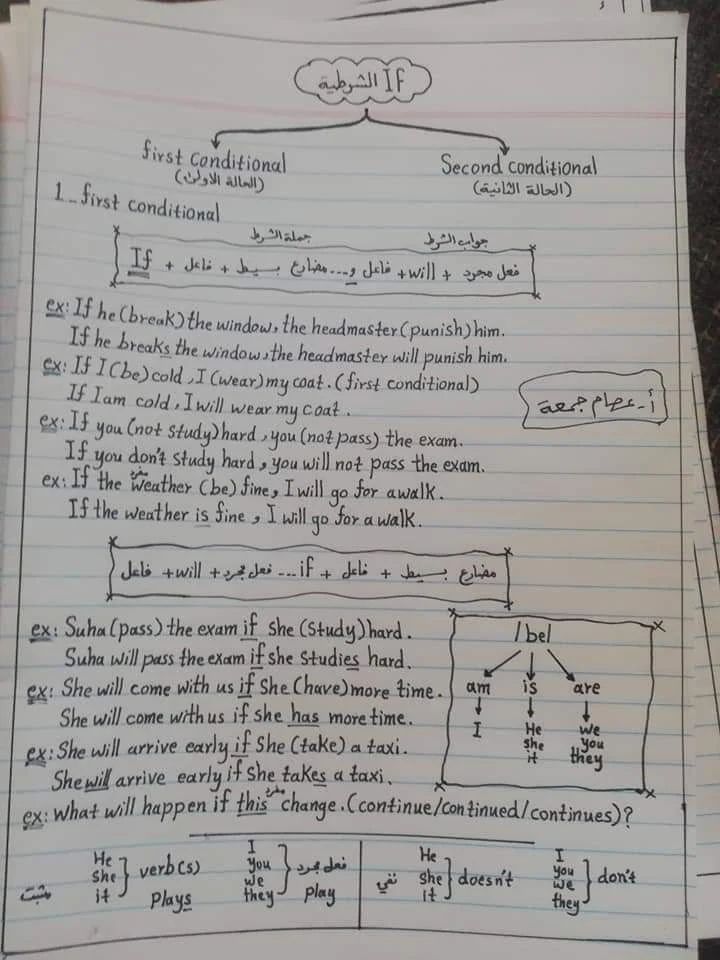 If الشرطية
first conditional
(الحالة الاولى)
Second conditional
(الحالة الثانية)
1_first conditional
جملة الشرط
جواب الشرط
If + فاعل + مضارع بسيط ...و فاعل + will + فعل مجرد
ex: If he (break) the window, the headmaster (punish) him.
If he breaks the window, the headmaster will punish him.
ex: If I (be) cold, I (wear) my coat. (first conditional)
If I am cold, I will wear my coat.
أ- عصام جمعة
ex: If you (not study) hard, you (not pass) the exam.
If you don't study hard, you will not pass the exam.
مفرد
ex: If the weather (be) fine, I will go for a walk.
If the weather is fine, I will go for a walk.
فاعل + will + فعل مجرد ... if + فاعل + مضارع بسيط
ex: Suha (pass) the exam if she (study) hard.
Suha will pass the exam if she studies hard.
ex: She will come with us if she (have) more time.
She will come with us if she has more time.
ex: She will arrive early if she (take) a taxi.
She will arrive early if she takes a taxi.
مفرد
ex: What will happen if this change. (continue/continued/continues)?
/be/
am is are
I
He
she
it
we
you
they
مثبت
He
she
it
verb(s)
plays
I
you
we
they
فعل مجرد
play
نفي
He
she
it
doesn't
I
you
we
they
don't